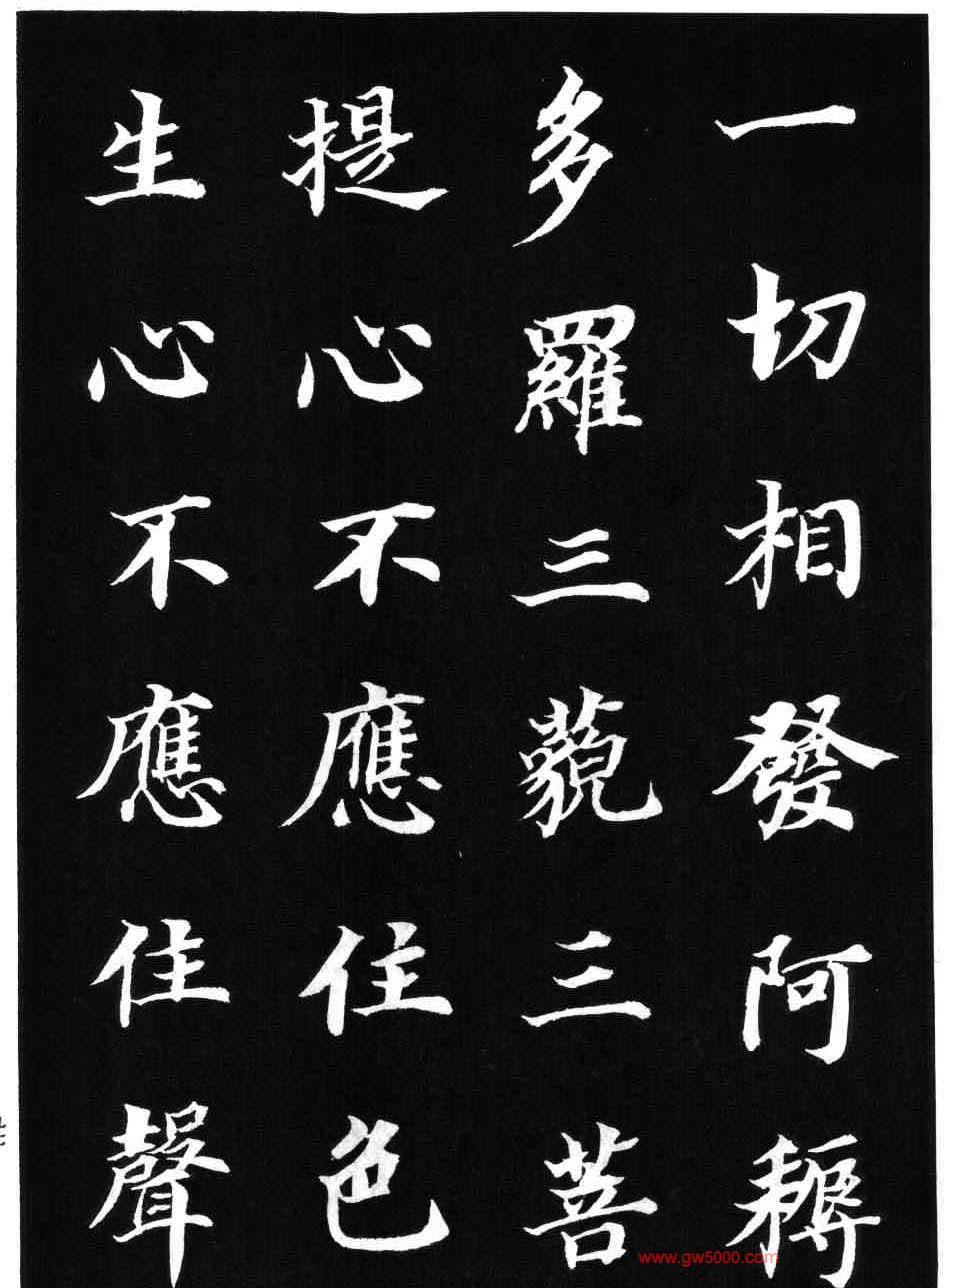 一切相發阿耨
多羅三藐三菩
提心不應住色
生心不應住聲
www.gw5000.com